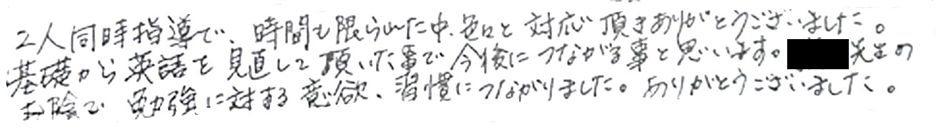 2人同時指導で、時間も限られた中、色々と対応頂きありがとうございました。
基礎から英語を見直して頂いた事で今後につながる事と思います。先生の
お陰で勉強に対する意欲、習慣につながりました。ありがとうございました。